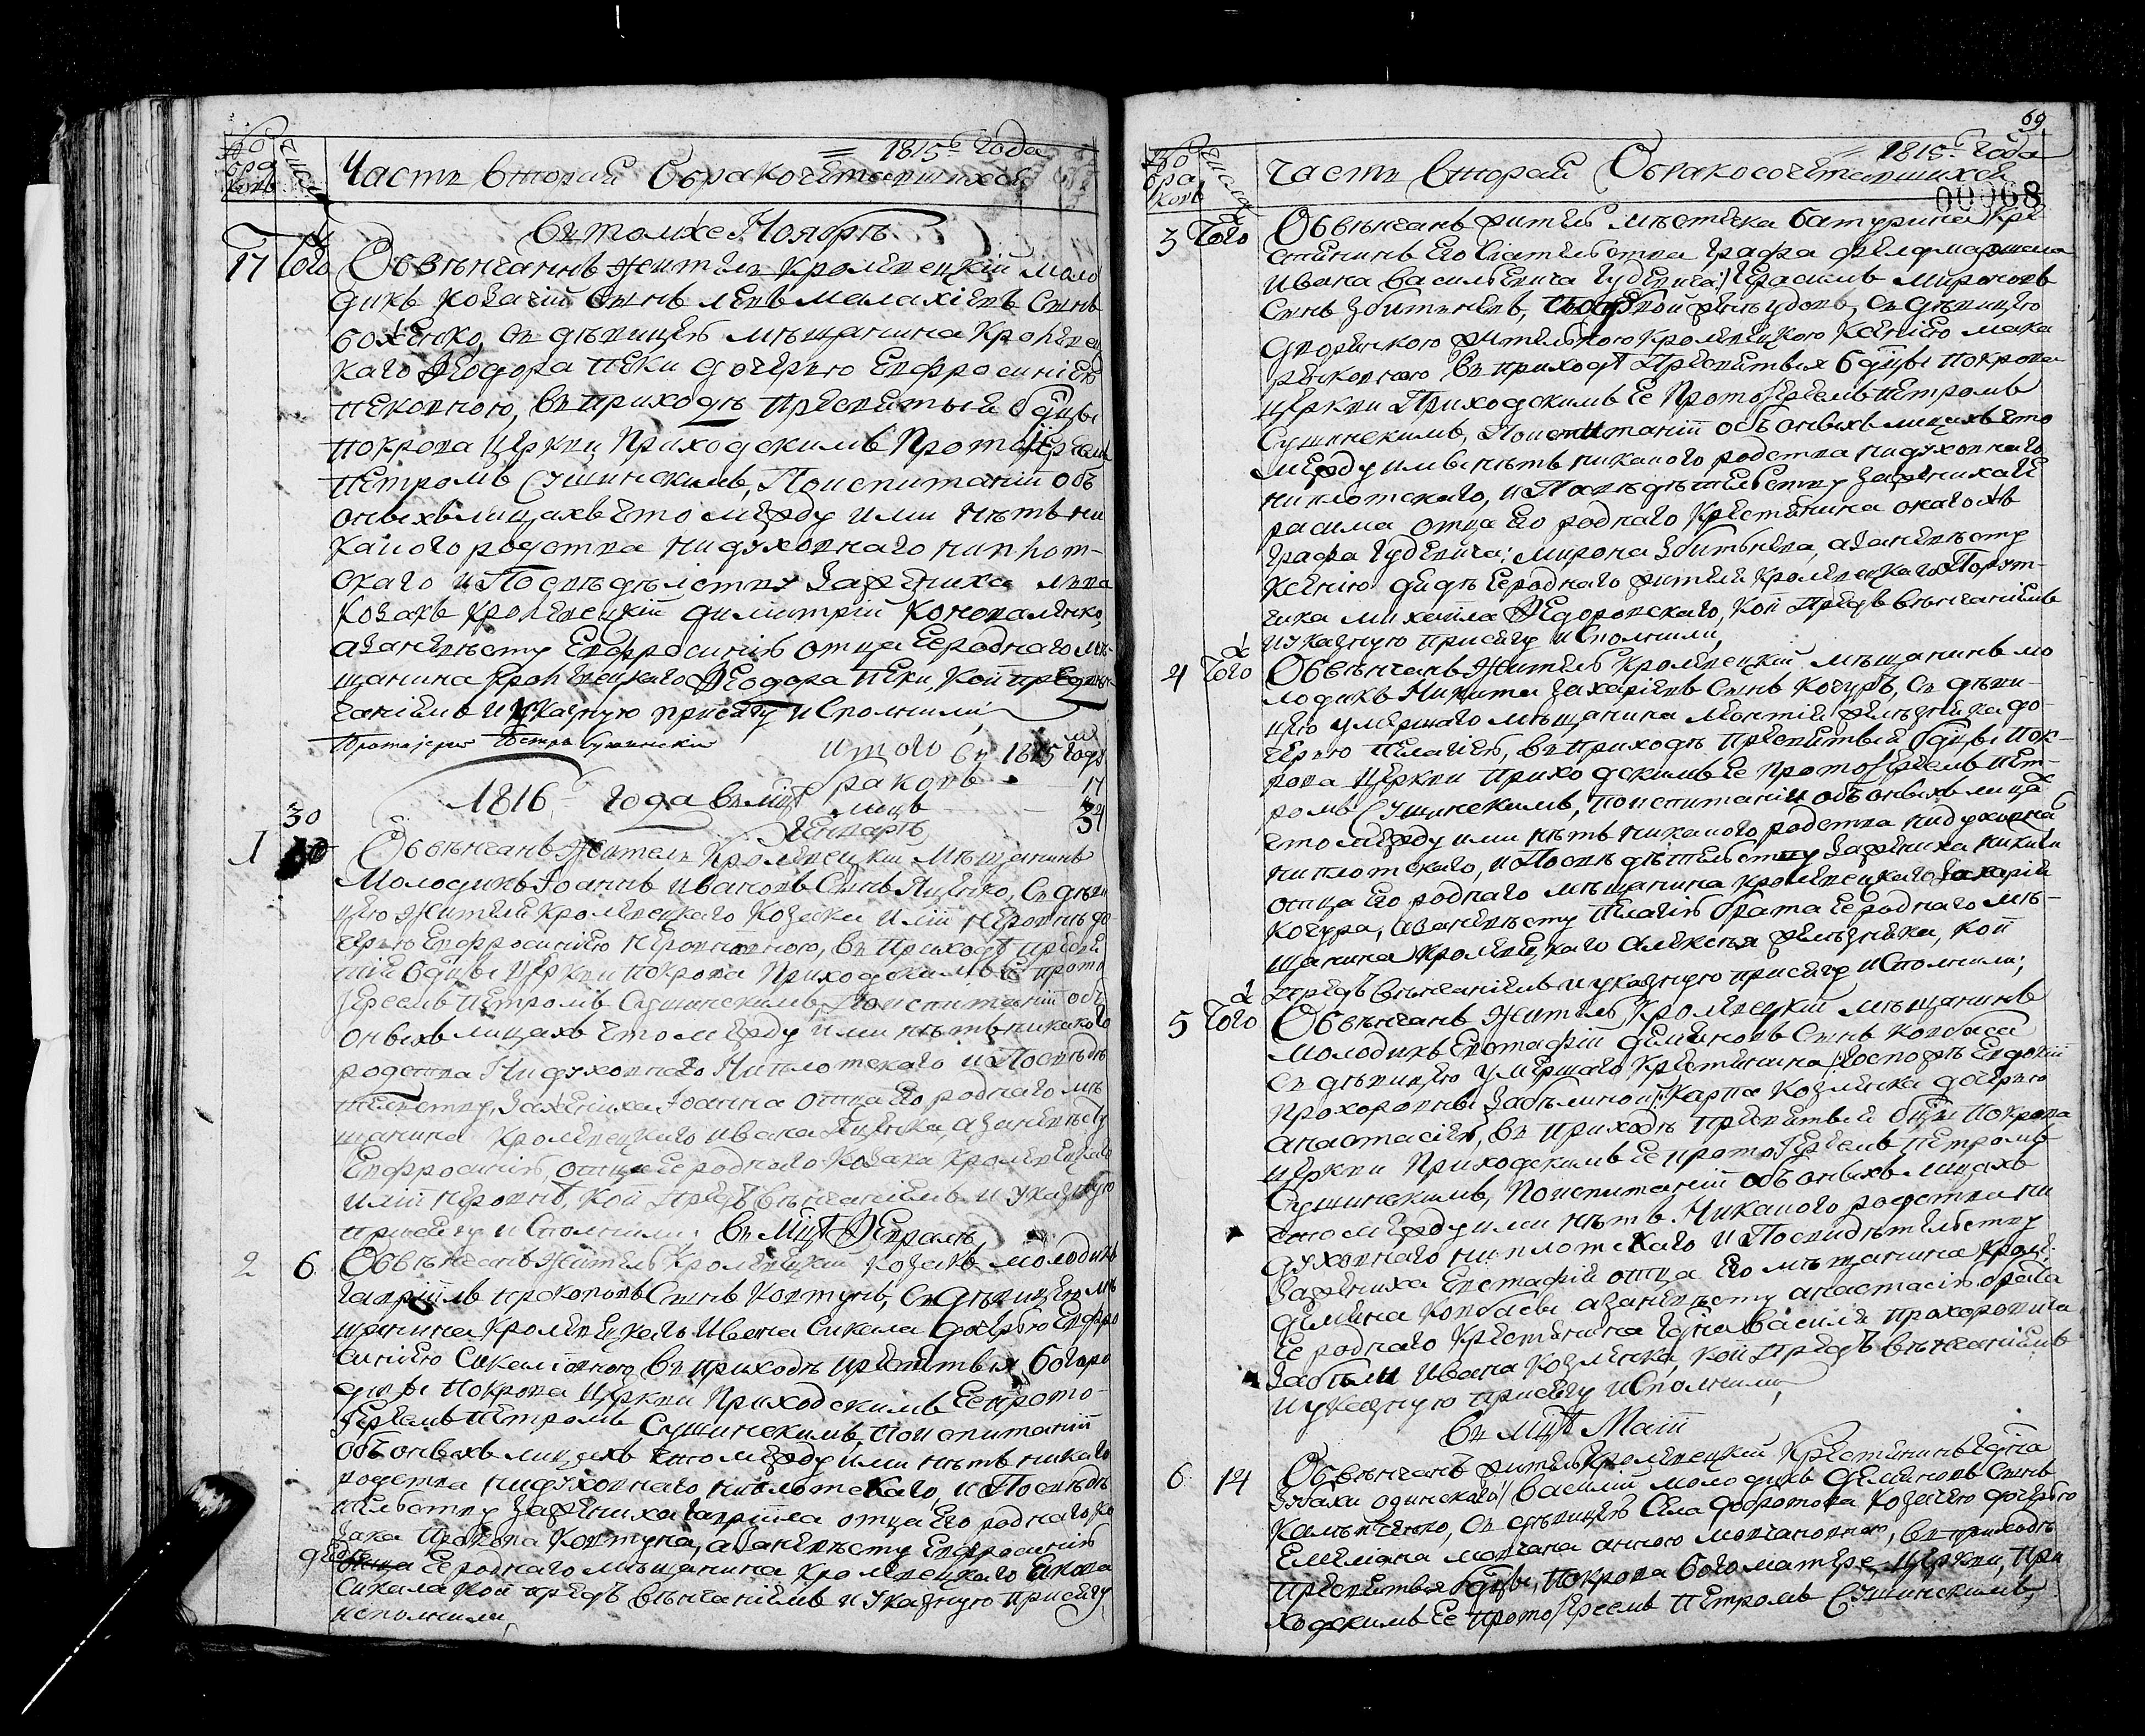 Число браковъ
Числа
= 1815го Года
Часть Вторая О бракочетавшихся
Въ томже Ноябрѣ
17 Того Обвѣнчаннъ Житель Кролевецкій моло
дикъ козачій сынъ Левъ Малахіевъ Сынъ
Боженко, съ дѣвицею мѣщанина Кролевец
каго Ѳеодора Пеки дочерью Евфросиніею
Пековною, въ приходѣ Пресвятыя бдцы
покрова церкви Приходскимъ Протоіереемъ
Петромъ Сушинскимъ, По испитаніи объ
оныхъ лицахъ что между ими нѣтъ ни
какого родства ни духовнаго ни плот-
скаго и По свѣдѣтелству За жениха Лва
козакъ кролевецкій Димитрій Коноваленко,
а за невѣсту Евфросинію отца Ее роднаго мѣ-
щанина Кролевецкаго Ѳеодора Пеки, кои предъ вѣн-
чаніемъ и указную присягу исполнили;
Протоіерей Петръ Сушинскій
итого въ 1815м году
браковъ — 17
лицъ — 34
1816го года въ мцѣ
Генварѣ
1 30 Обвѣнчанъ Житель Кролевецкій Мѣщанинъ
Молодикъ Іоаннъ Ивановъ Сынъ Яценко, съ дѣви
цею Жителя Кролевецкаго Козака Иліи Неровнѣ до
черью Евфросиніею Неровновною, въ Приходѣ пресвя
тія бдцы Церкви покрова Приходскимъ Ее прото
іереемъ Петромъ Сушинскимъ, По испитаніи объ
оныхъ лицахъ что между ими нѣтъ никакого
родства Ни духовнаго Ни плотскаго и По свѣдѣ
телству, За жениха Іоанна отца Его роднаго мѣ
щанина Кролевецкаго Ивана Яценка, а за невѣсту
Евфросинію, отца Ее роднаго Козака Кролевецкаго
Иліи Неровнѣ, кои предъ вѣнчаніемъ и указную
присягу исполнили; Въ Мцѣ Ѳевралѣ
2 6 Обвѣнчанъ Житель Кролевецкій козакъ молодикъ
Гавріилъ Прокоповъ Сынъ Ковтунъ, съ дѣвицею мѣ
щанина Кролевецкаго Ивана Сикала дочерью Евфро
синіею Сикаловною въ приходѣ пресвятыя богоро
дицы Покрова Церкви Приходскимъ Ее прото-
іереемъ Петромъ Сушинскимъ, по испитаніи
объ оныхъ лицахъ что между ими нѣтъ никакого
родства ни духовнаго ни плотскаго, и По свѣдѣ
телству За жениха Гавріила отца Его роднаго, ко
зака Прокопа Ковтуна, а за невѣсту Евфросинію
дѣдъ Ее роднаго мѣщанина Кролевецкаго
Сикала кои предъ вѣнчаніемъ и указную присягу
исполнили;
69
Число браковъ
Числа
= 1815го Года
Часть Вторая О бракосочетавшихся
00068
3 Того Обвѣнчанъ житель мѣстечка Батурина Кре
стянинъ Его Сіятельства Графа Фелдмаршала
Ивана Васильевича Гудовича Герасимъ Мироновъ
Сынъ Збитневъ, вдовъ, съ дѣвицею
дворянкою жителкою Кролевецкою Ксеніею Мака
ревсковною въ приходѣ Пресвятыя бдцы покрова
Церкви Приходскимъ Ее Протоіереемъ Петромъ
Сушинскимъ, По испитаніи объ оныхъ лицахъ что
между ими нѣтъ никакого родства ни духовнаго
ни плотскаго, и По свѣдѣтельству за жениха Ге
расима отца Его роднаго Крестянина онагожъ
Графа Гудовича: Мирона Збитнева, а за невѣсту
Ксенію дядѣ Ее роднаго жителя Кролевецкаго Порут-
чика Михаила Ѳедоровскаго, кои предъ вѣнчаніемъ
и указную присягу исполнили;
4 Того Обвѣнчанъ Житель Кролевецкій мѣщанинъ мо
лодикъ Никита Захаріевъ Сынъ Кочура, съ дѣви-
цею умершаго мѣщанина Леонтія Желѣзняка до-
черью Пелагіею, въ приходѣ пресвятыя бдцы Пок-
рова Церкви приходскимъ Ее Протоіереемъ Пет-
ромъ Сушинскимъ, по испитаніи объ оныхъ лица
что между ими нѣтъ никакого родства ни духовна
ни плотскаго, и По свѣдѣтельству За жениха Никити
отца Его роднаго мѣщанина Кролевецкаго Захарія
Кочура, а за невѣсту Пелагію брата Ее роднаго мѣ-
щанина Кролевецкаго Алексѣя Желѣзняка, кои
предъ вѣнчаніемъ и указную присягу исполнили;
5 Того Обвѣнчанъ Житель Кролевецкій мѣщанинъ
Молодикъ Евстафій Деминовъ Сынъ Ковбаса
съ дѣвицею умершаго Крестянина Госпожѣ Евдокіи
Прохоровны Забѣлиной Карпа Козленка дочерью
Анастасіею, въ приходѣ пресвятыя бдцы Покрова
церкви Приходскимъ Ее протоіереемъ Петромъ
Сушинскимъ, По испитаніи объ оныхъ лицахъ
что между ими нѣтъ Никакого родства ни
духовнаго ни плотскаго и По свидѣтельству
За жениха Евстафія отца Его мѣщанина Крол.
Демяна Ковбасы а за невѣсту Анастасію брата
Ее роднаго Крестянина Гдна Василія Прохоровича
Забѣли Ивана Козленка, кои предъ вѣнчаніемъ
и указную присягу исполнили;
Въ Мцѣ Маіи
6 14 Обвѣнчанъ житель Кролевецкій Крестянинъ Гдна
Василій молодикъ Деминовъ Сынъ
съ дѣвицею Села Добротова Козачею дочерью
Емеліяна Мовчана Анною Мовчановною, въ приходѣ
Пресвятыя бдцы, покрова богоматере Церкви, При
ходскимъ Ее протоіереемъ Петромъ Сушинскимъ,